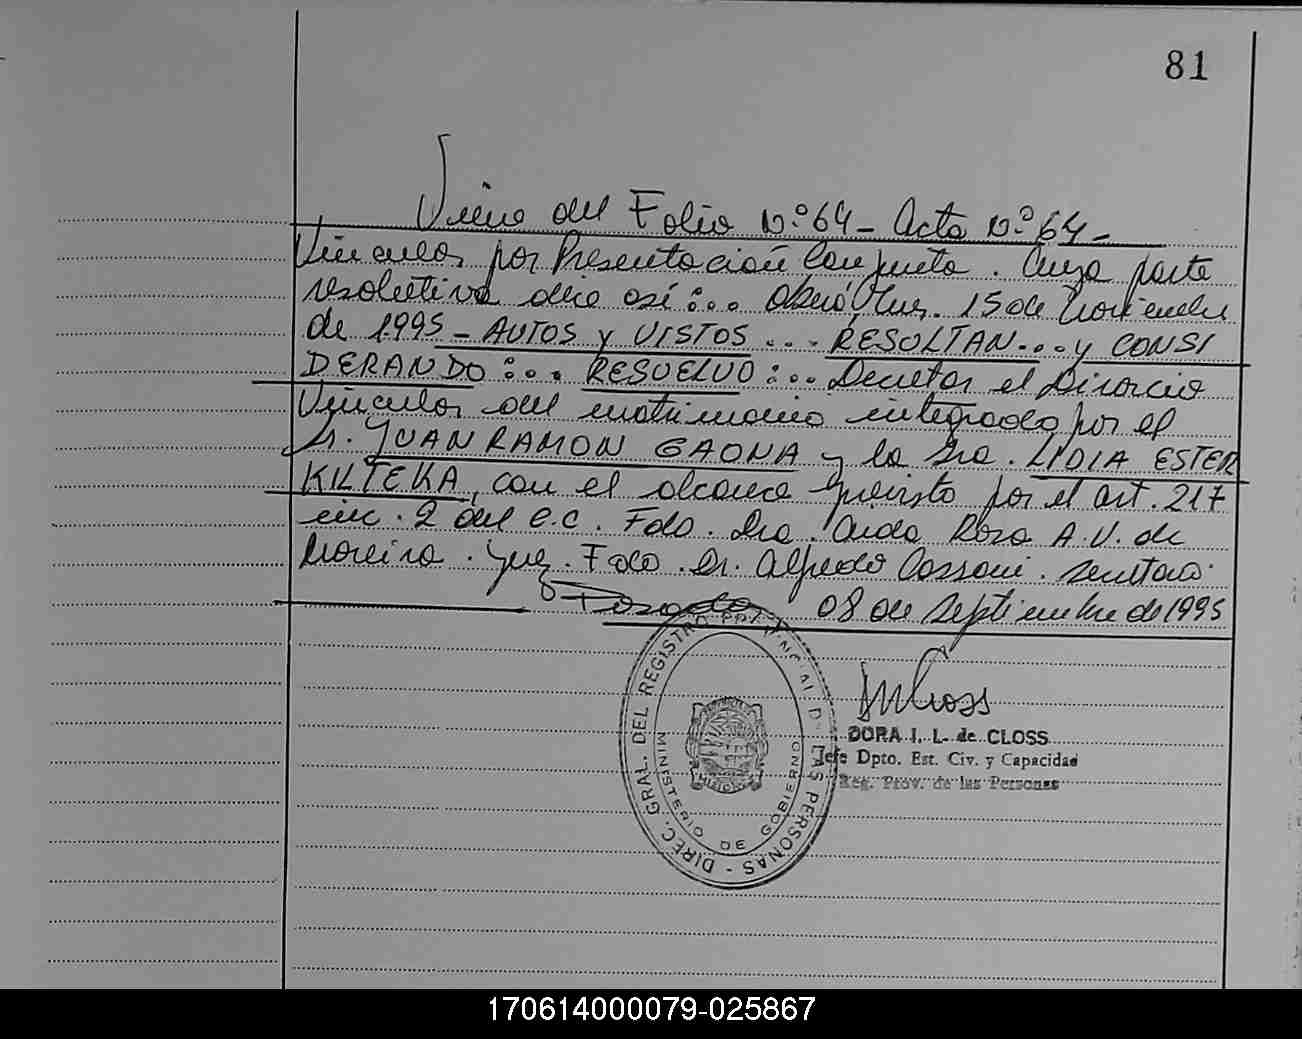 81
Viene del Folio Nº 64 - Acta Nº 64 -
Vincular por Presentación Conjunta. Cuya parte
resolutiva dice así:... Oberá, Mnes. 15 de
de 1.995 - AUTOS y VISTOS ... RESULTAN... y CONSI
DERANDO:... RESUELVO:... Decretar el Divorcio
Vincular del matrimonio integrado por el
Sr. JUAN RAMON GAONA y la Sra. LIDIA ESTER
KILTEKA, con el alcance previsto por el art. 217
inc. 2 del C.C. Fdo. Dra. Aida Rosa A.V. de
Moreira. Juez. Fdo. Dr. Alfredo Cassoni. Secretario.
Posadas, 08 de septiembre de 1995
DIREC. GRAL. DEL REGISTRO PROVINCIAL DE LAS PERSONAS -
MINISTERIO DE GOBIERNO
MISIONES
DORA I. L. de CLOSS
Jefe Dpto. Est. Civ. y Capacidad
Reg. Prov. de las Personas
170614000079-025867